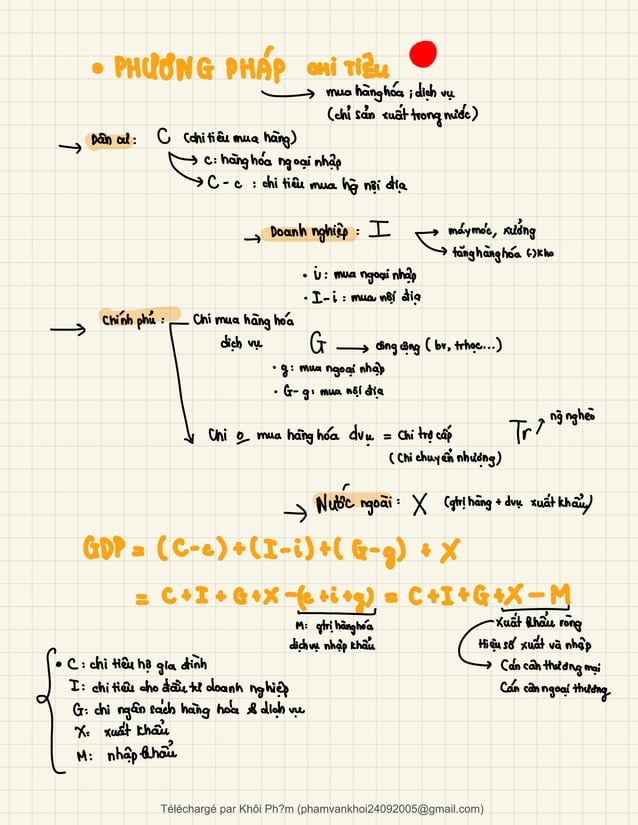 • PHƯƠNG PHÁP CHI TIÊU
→ mua hàng hóa ; dịch vụ
(chỉ sản xuất trong nước)
→ Dân cư : C (chi tiêu mua hàng)
→ c : hàng hóa ngoại nhập
→ C - c : chi tiêu mua hg nội địa
→ Doanh nghiệp : I → máy móc, xưởng
→ tăng hàng hóa (-) kho
• i : mua ngoại nhập
• I - i : mua nội địa
→ Chính phủ : Chi mua hàng hóa
dịch vụ G → công cộng ( bv, trhọc...)
• g : mua ngoại nhập
• G - g : mua nội địa
Chi o mua hàng hóa dvụ = Chi trợ cấp Tr ↗ ng nghèo
( Chi chuyển nhượng)
→ Nước ngoài : X (gtrị hàng + dvụ xuất khẩu)
GDP = (C-c) + (I-i) + (G-g) + X
= C + I + G + X - (c+i+g) = C + I + G + X - M
M : gtrị hàng hóa
dịch vụ nhập khẩu
Xuất khẩu ròng
Hiệu số xuất và nhập
→ Cán cân thương mại
Cán cân ngoại thương
• C : chi tiêu hộ gia đình
I : chi tiêu cho đầu tư doanh nghiệp
G : chi ngân sách hàng hóa & dịch vụ
X : xuất khẩu
M : nhập khẩu
Téléchargé par Khôi Ph?m (phamvankhoi24092005@gmail.com)